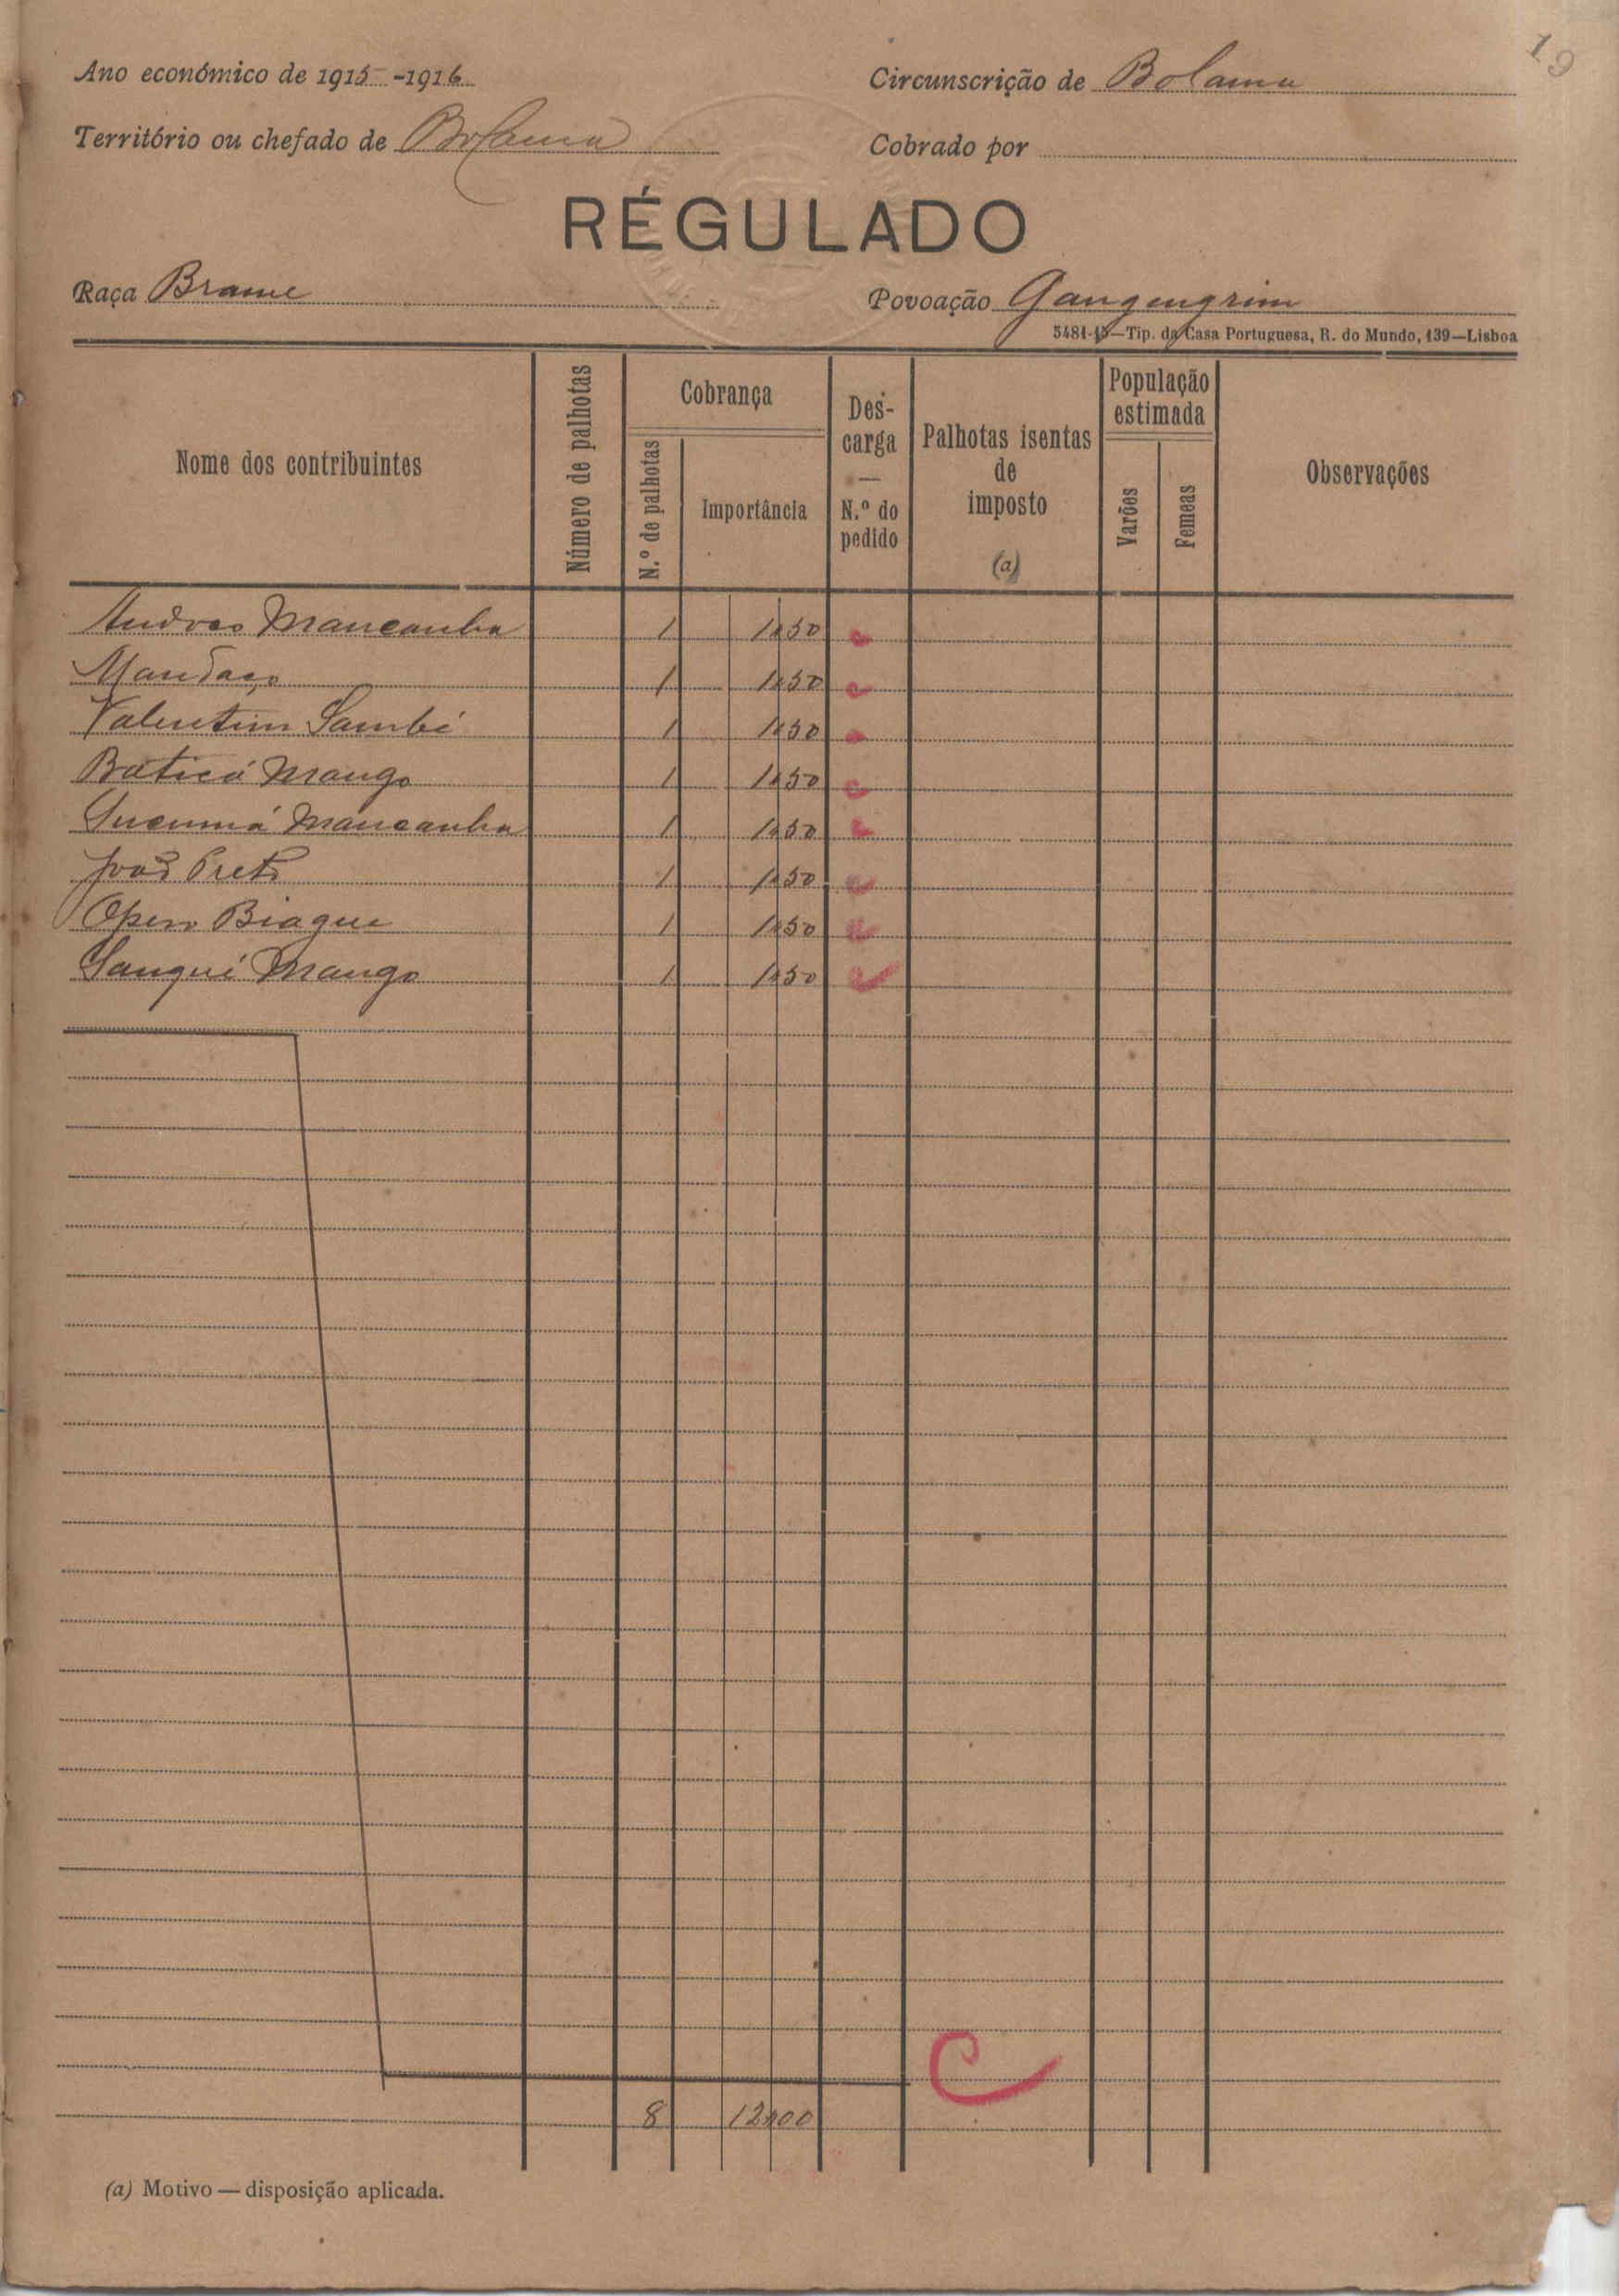 19
Ano económico de 1915-1916 Circunscrição de Bolama
Território ou chefado de Bolama Cobrado por
RÉGULADO
Raça Brame Povoação Gangengrim
5481-15—Tip. da Casa Portuguesa, R. do Mundo, 139—Lisboa
Nome dos contribuintes
Número de palhotas
Cobrança
N.º de palhotas
Importância
Des-
carga
—
N.º do
pedido
Palhotas isentas
de
imposto
(a)
População
estimada
Varões
Femeas
Observações
Andres Mancanha 1 1$50
1 1$50
Valentim Sambé 1 1$50
Baticá Mango 1 1$50
Mancanha 1 1$50
João Preto 1 1$50
Biague 1 1$50
Sanqué Mango 1 1$50
C
8 12$00
(a) Motivo — disposição aplicada.